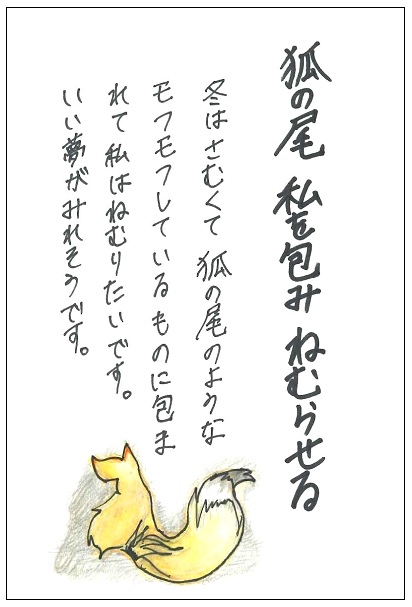 狐の尾 私を包み ねむらせる
冬はさむくて 狐の尾のような
モフモフしているものに包ま
れて私はねむりたいです。
いい夢がみれそうです。